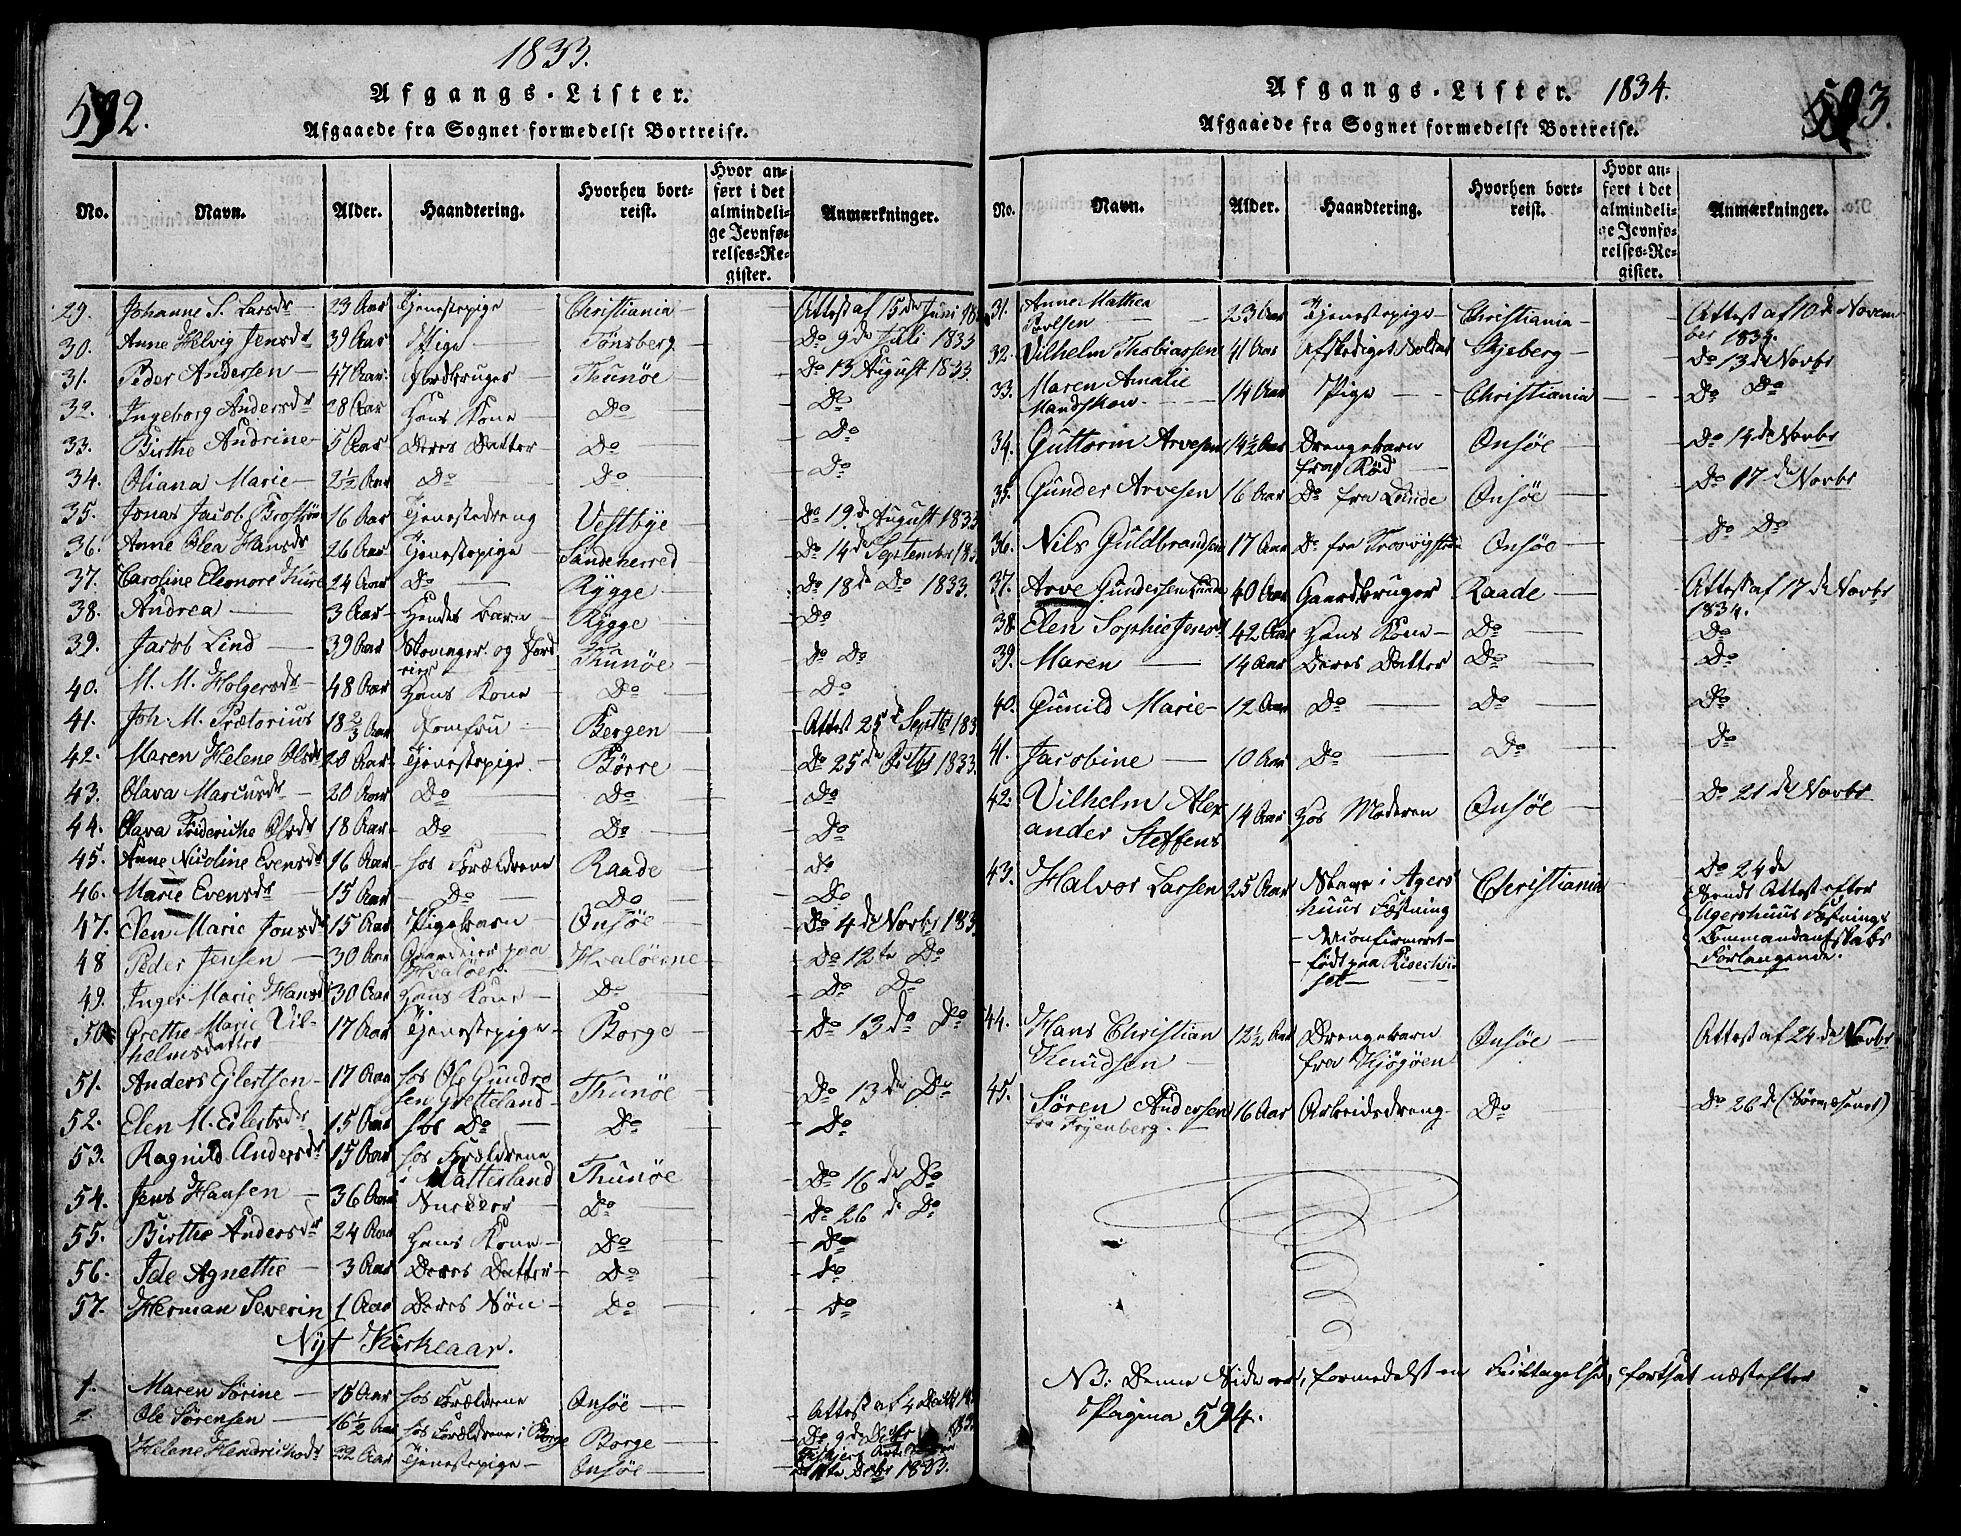 1833.
592.
Afgangs-Lister.
Afgaaede fra Sognet formedelst Bortreise.
No. Navn. Alder. Haandtering. Hvorhen bortreist. Hvor anført i det almindelige Jevnførelses-Register. Anmærkninger.
29. Johanne S. Larsdr 23 Aar Tjenestepige Christiania Attest af 15de Juni 18
30. Anne Helvig Jensdr 39 Aar Pige Tönsberg Do 9de Juli 1833
31. Peder Andersen 47 Aar Jordbruger Thunöe Do 13 August 1833.
32. Ingeborg Andersdr 28 Aar Hans Kone Do Do
33. Birthe Andrine 5 Aar Deres Datter Do Do
34. Oliana Marie 2½ Aar Do Do Do
35. Jonas Jacob Broström 16 Aar Tjenestedreng Vestbye Do 19de August 1833
36. Anne Olea Hansdr 26 Aar Tjenestepige Sandeherred Do 14de Septembr 183
37. Caroline Eleonore Kure 24 Aar Do Rygge Do 18de Do 1833.
38. Andrea 3 Aar Hendes Barn Rygge Do
39. Jacob Lind 39 Aar og Thunöe Do Do
40. M. M. Holgersdr 48 Aar Hans Kone Do Do
41. Joh. M. Prætorius 18⅔ Aar Jomfru Bergen Attest 25de Septbr 183
42. Maren Helene Olsdr 20 Aar Tjenestepige Börre Do 25de Octbr 1833.
43. Olava Marcusdr 20 Aar Do Do Do
44. Olava Frideriche Olsdr 18 Aar Do Do Do
45. Anne Nicoline Evensdr 16 Aar hos Forældrene Raade Do
46. Marie Evensdr 15 Aar Do Do Do
47. Elen Marie Jonsdr 15 Aar Pigebarn Onsöe Do 4de Novbr 183
48 Peder Jensen 30 Aar Gaardeier paa Hvalöer Hvalöerne Do 12te Do
49. Inger Marie Hansd 30 Aar Hans Kone Do Do Do
50 Grethe Marie Vilhelmsdatter 17 Aar Tjenestepige Borge Do 13de Do
51. Anders Eilertsen 17 Aar hos Ole Gundersen Grötteland Thunöe Do 13de Do
52. Elen M. Eilertsdr 15 Aar hos Do Do Do
53. Ragnild Andersdr 15 Aar hos Forældrene i Matterland Thunöe Do 16de Do
54. Jens Hansen 36 Aar Snedker Do Do 26de Do
55. Birthe Andersdr 24 Aar Hans Kone Do Do
56. Ide Agnethe 3 Aar Deres Datter Do Do
57. Herman Severin 1 Aar Deres Søn Do Do
Nyt Kirkeaar.
1. Maren Sörine 15 Aar hos Forældrene Onsöe Attest af 4
2 Ole Sörensen 16½ Aar hos Forældrene i Borge Borge Do 9de Decbr
Helene Hendrichsdr 22 Aar Tjenestepige Onsöe Decbr 1833.
Afgangs-Lister. 1834.
593.
Afgaaede fra Sognet formedelst Bortreise.
No. Navn. Alder. Haandtering. Hvorhen bortreist. Hvor anført i det almindelige Jevnførelses-Register. Anmærkninger.
31. Anne Mathea Poulsen 23 Aar Tjenestepige Christiania Attest af 10de November 1834.
32. Vilhelm Thobiassen 41 Aar Afskediget Soldat Skjeberg Do 13de Novbr
33. Maren Amalie Mandskow 14 Aar Pige Christiania Do Do
34. Guttorm Arvesen 14½ Aar Drengebarn fra Röd Onsöe Do 14de Novbr
35. Gunder Arvesen 16 Aar Do fra Lunde Onsöe Do 17de Novbr
36. Nils Guldbrandsen 17 Aar Do fra Trosvigstr Onsöe Do Do
37. Arve Gundersen Lunde 40 Aar Gaardbruger Raade Attest af 17de Novbr 1834.
38. Elen Sophie Jensd 42 Aar Hans Kone Do Do
39. Maren 14 Aar Deres Datter Do Do
40. Gunild Marie 12 Aar Do Do Do
41. Jacobine 10 Aar Do Do Do
42. Vilhelm Alexander Steffens 14 Aar hos Moderen Onsöe Do 21de Novbr
43. Halvor Larsen 25 Aar Slave i Agershuus Fæstning Uconfirmeret født paa Christiania Do 24de Sendt Attest efter Agershuus Fæstnings Commandantskabs Forlangende.
44. Hans Christian Knudsen 12½ Aar Drengebarn fra Kjøgøen Onsöe Attest af 24de Novbr
45. Sören Andersen fra Fryenberg. 16 Aar Arbeidsdreng Do Do 26de
NB: Denne Side er, formedelst en Feiltagelse, fortsat næst efter
Pagina 594.